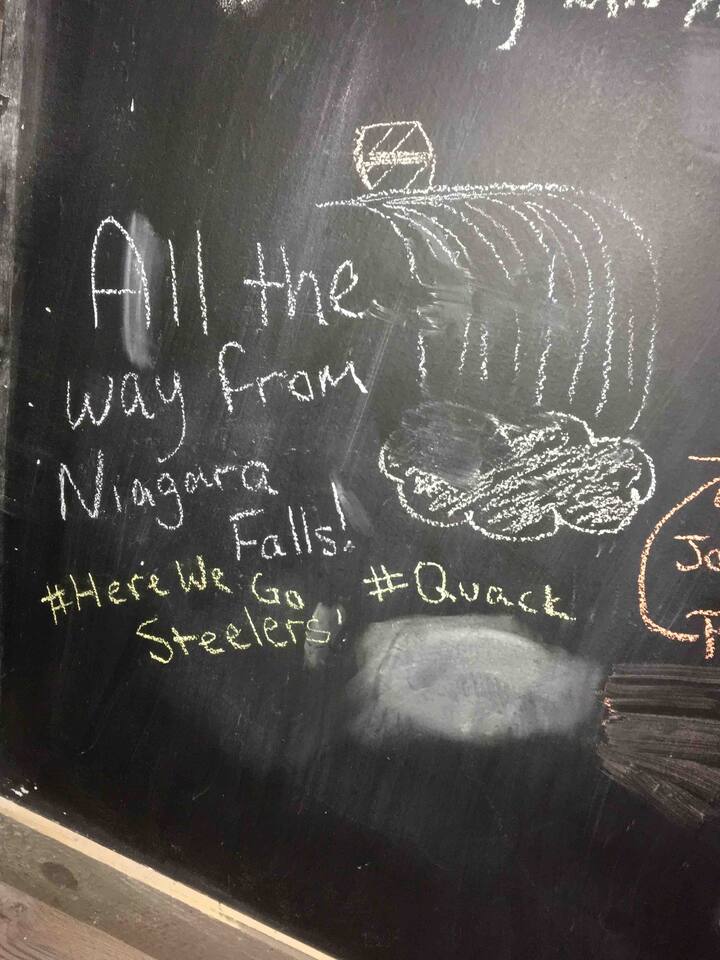 All the
way from
Niagara
Falls!
#Here We Go
Steelers!
#Quack
Jo